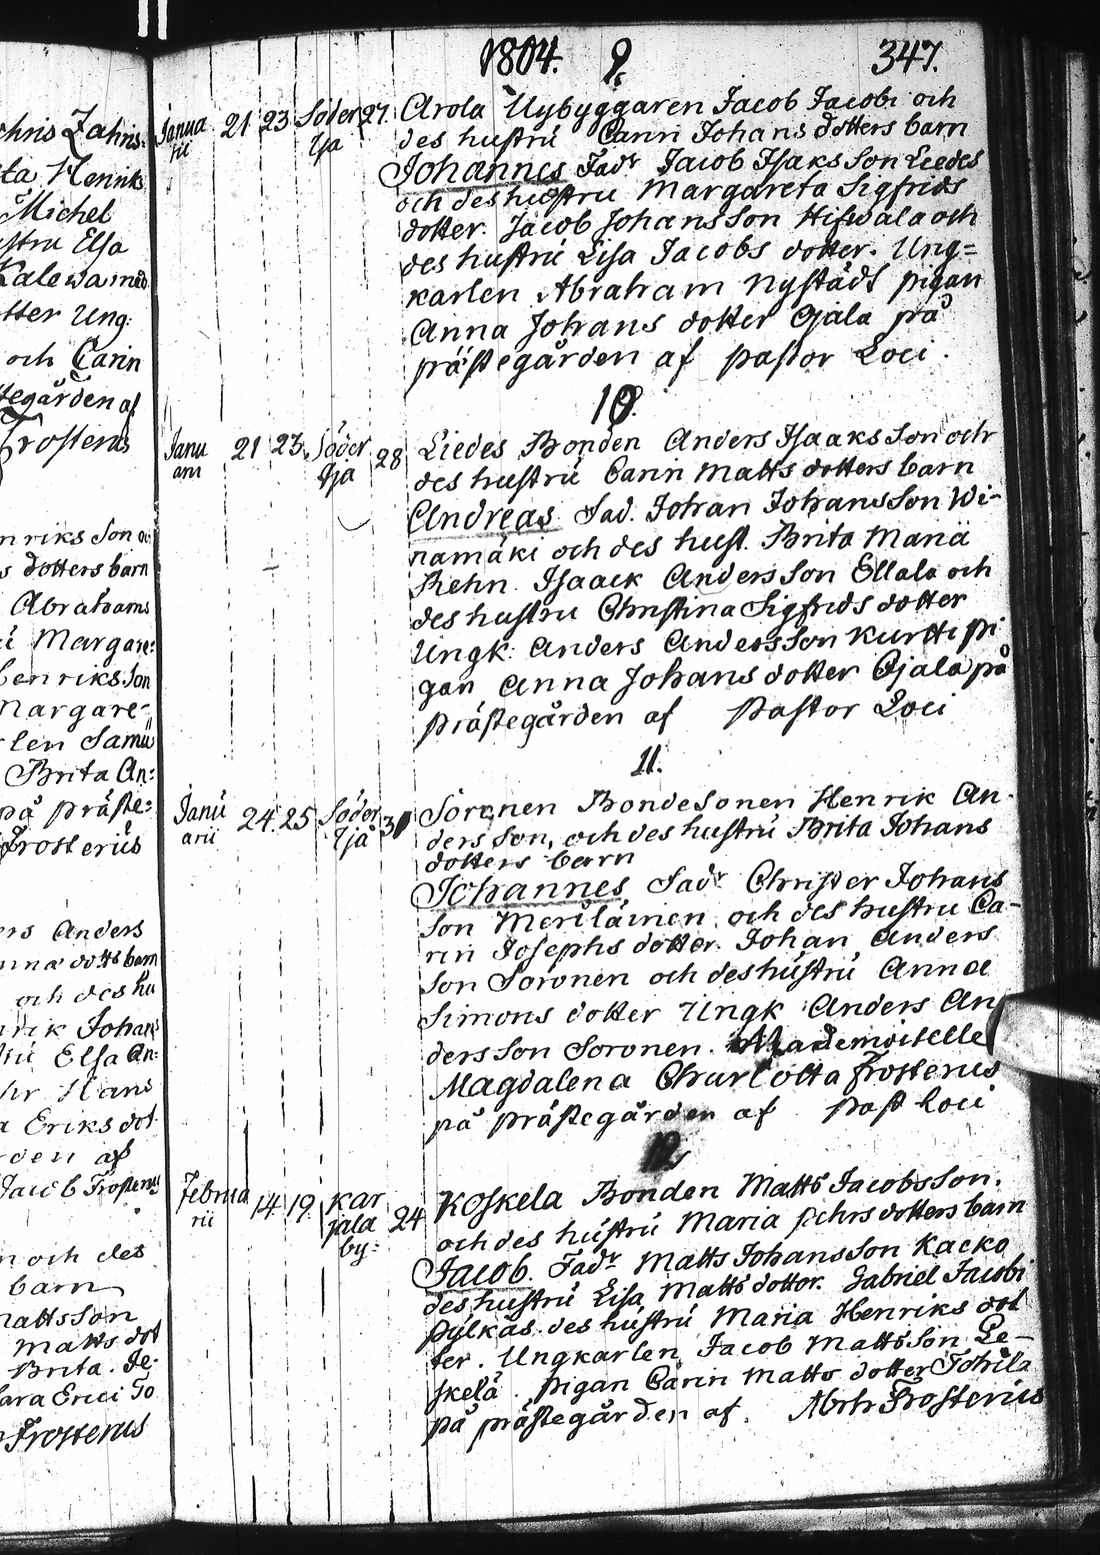 1804. 9. 347.
Janua
rii 21 23 Söder
lja 27. Arola Nybyggaren Jacob Jacobi och
des hustru Carin Johans dotters barn
Johannes Fadr Jacob Isaks Son Liedes
och des hustru Margareta Sigfrids
dotter. Jacob Johans Son Hifwala och
des hustru Lisa Jacobs dotter. Ung=
karlen Abraham Nystädt pigan
Anna Johans dotter Ojala på
prästegården af pastor Loci.
10.
Janu
arii 21 23 Söder
lja 28 Liedes Bonden Anders Isaaks Son och
des hustru Carin Matts dotters barn
Andreas Fad. Johan Johans Son Wi-
namäki och des hust. Brita Mariä
Rehn. Isaack Anders Son Ellala och
des hustru Christina Sigfrids dotter
Ungk: Anders Anders Son Kurtti pi
gan Anna Johans dotter Ojala på
prästegården af pastor Loci
11.
Janu
arii 24. 25 Söder
ljä 31 Soronen Bonde Sonen Henrik An-
ders Son, och des hustru Brita Johans
dotters barn
Johannes Fadr Christer Johans
Son Meriläinen och des hustru Ca-
rin Josephs dotter. Johan Anders
Son Soronen och des hustru Anna
Simons dotter Ungk Anders An
ders Son Soronen. Mademoiselle
Magdalena Charlotta Frosterus
på prästegården af past Loci
12.
Februa
rii 14 19. Kar
jala
by: 24 Koskela Bonden Matts Jacobs Son.
och des hustru Maria pehrs dotters barn
Jacob. Fadr Matts Johans Son Kacko
des hustru Lisa Matts dotter. Gabriel Jacobi
Pylkäs des hustru Maria Henriks dot
ter. Ungkarlen Jacob Matts Son Le-
skelä. pigan Carin Matts dotter Tohila
på prästegården af. Abrh Frosterius
chris Zahris:
ta Henriks
Michel
stru Elsa
Kalewa med
tter Ung:
och Carin
tegården af
Frosterus
nriks Son oc
s dotters barn
Abrahams
ü Margare:
Henriks Son
Margare-
rlen Samu
Brita An:
på präste:
Frosterüs
ers Anders
nna dotts barn
och des hu
nrik Johans
trü Elsa An:
hr Hans
a Eriks dot
rden af
Jacob Frosterus
n och des
barn
Matts Son
Matts dot
Brita. Je-
ara Erici To
Frosterus